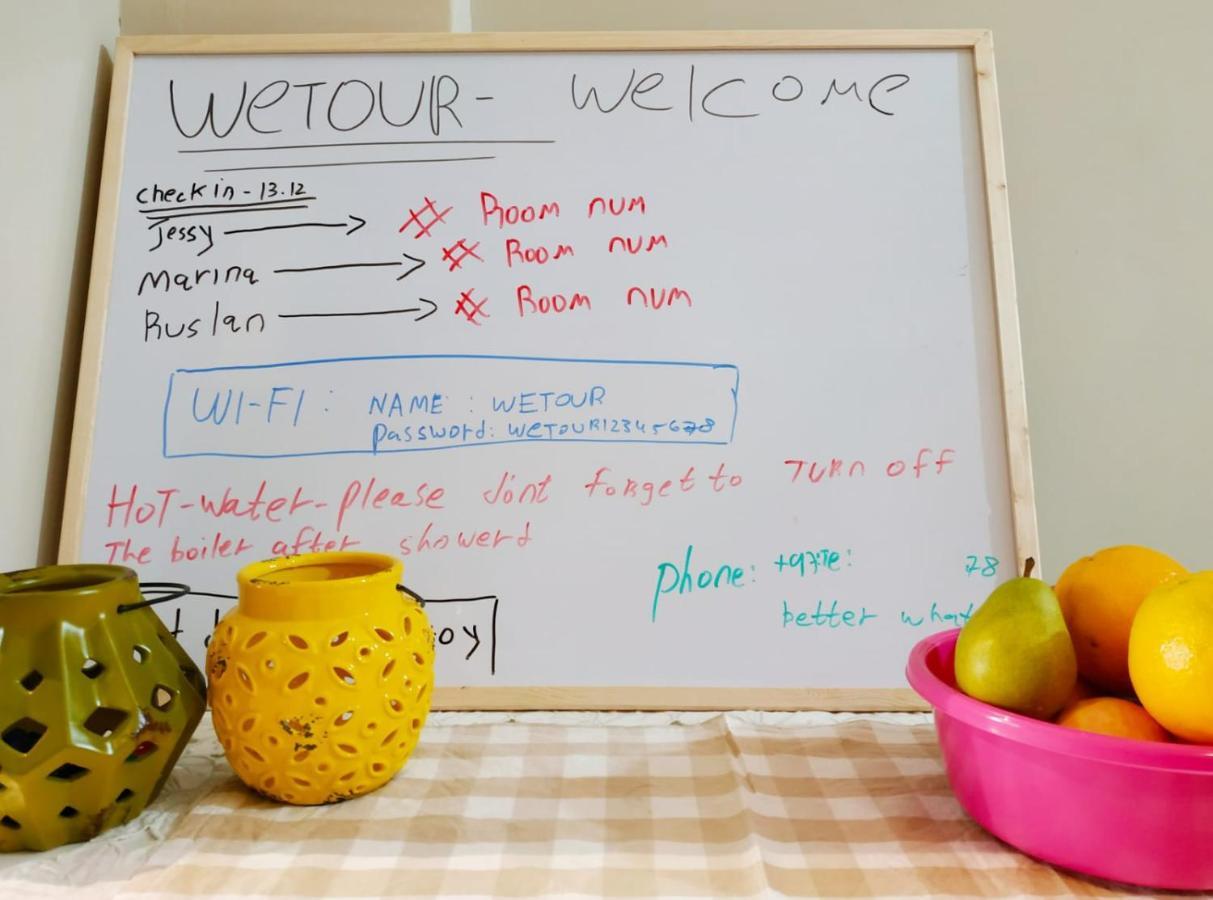 WeTOUR - Welcome
Check in - 13.12
Jessy → # Room num
Marina → # Room num
Ruslan → # Room num
WI-FI : NAME : WETOUR
Password: WeTOUR12345678
HOT-Water-please don't forget to TURN off
The boiler after showerd
phone: 78
better what
oy